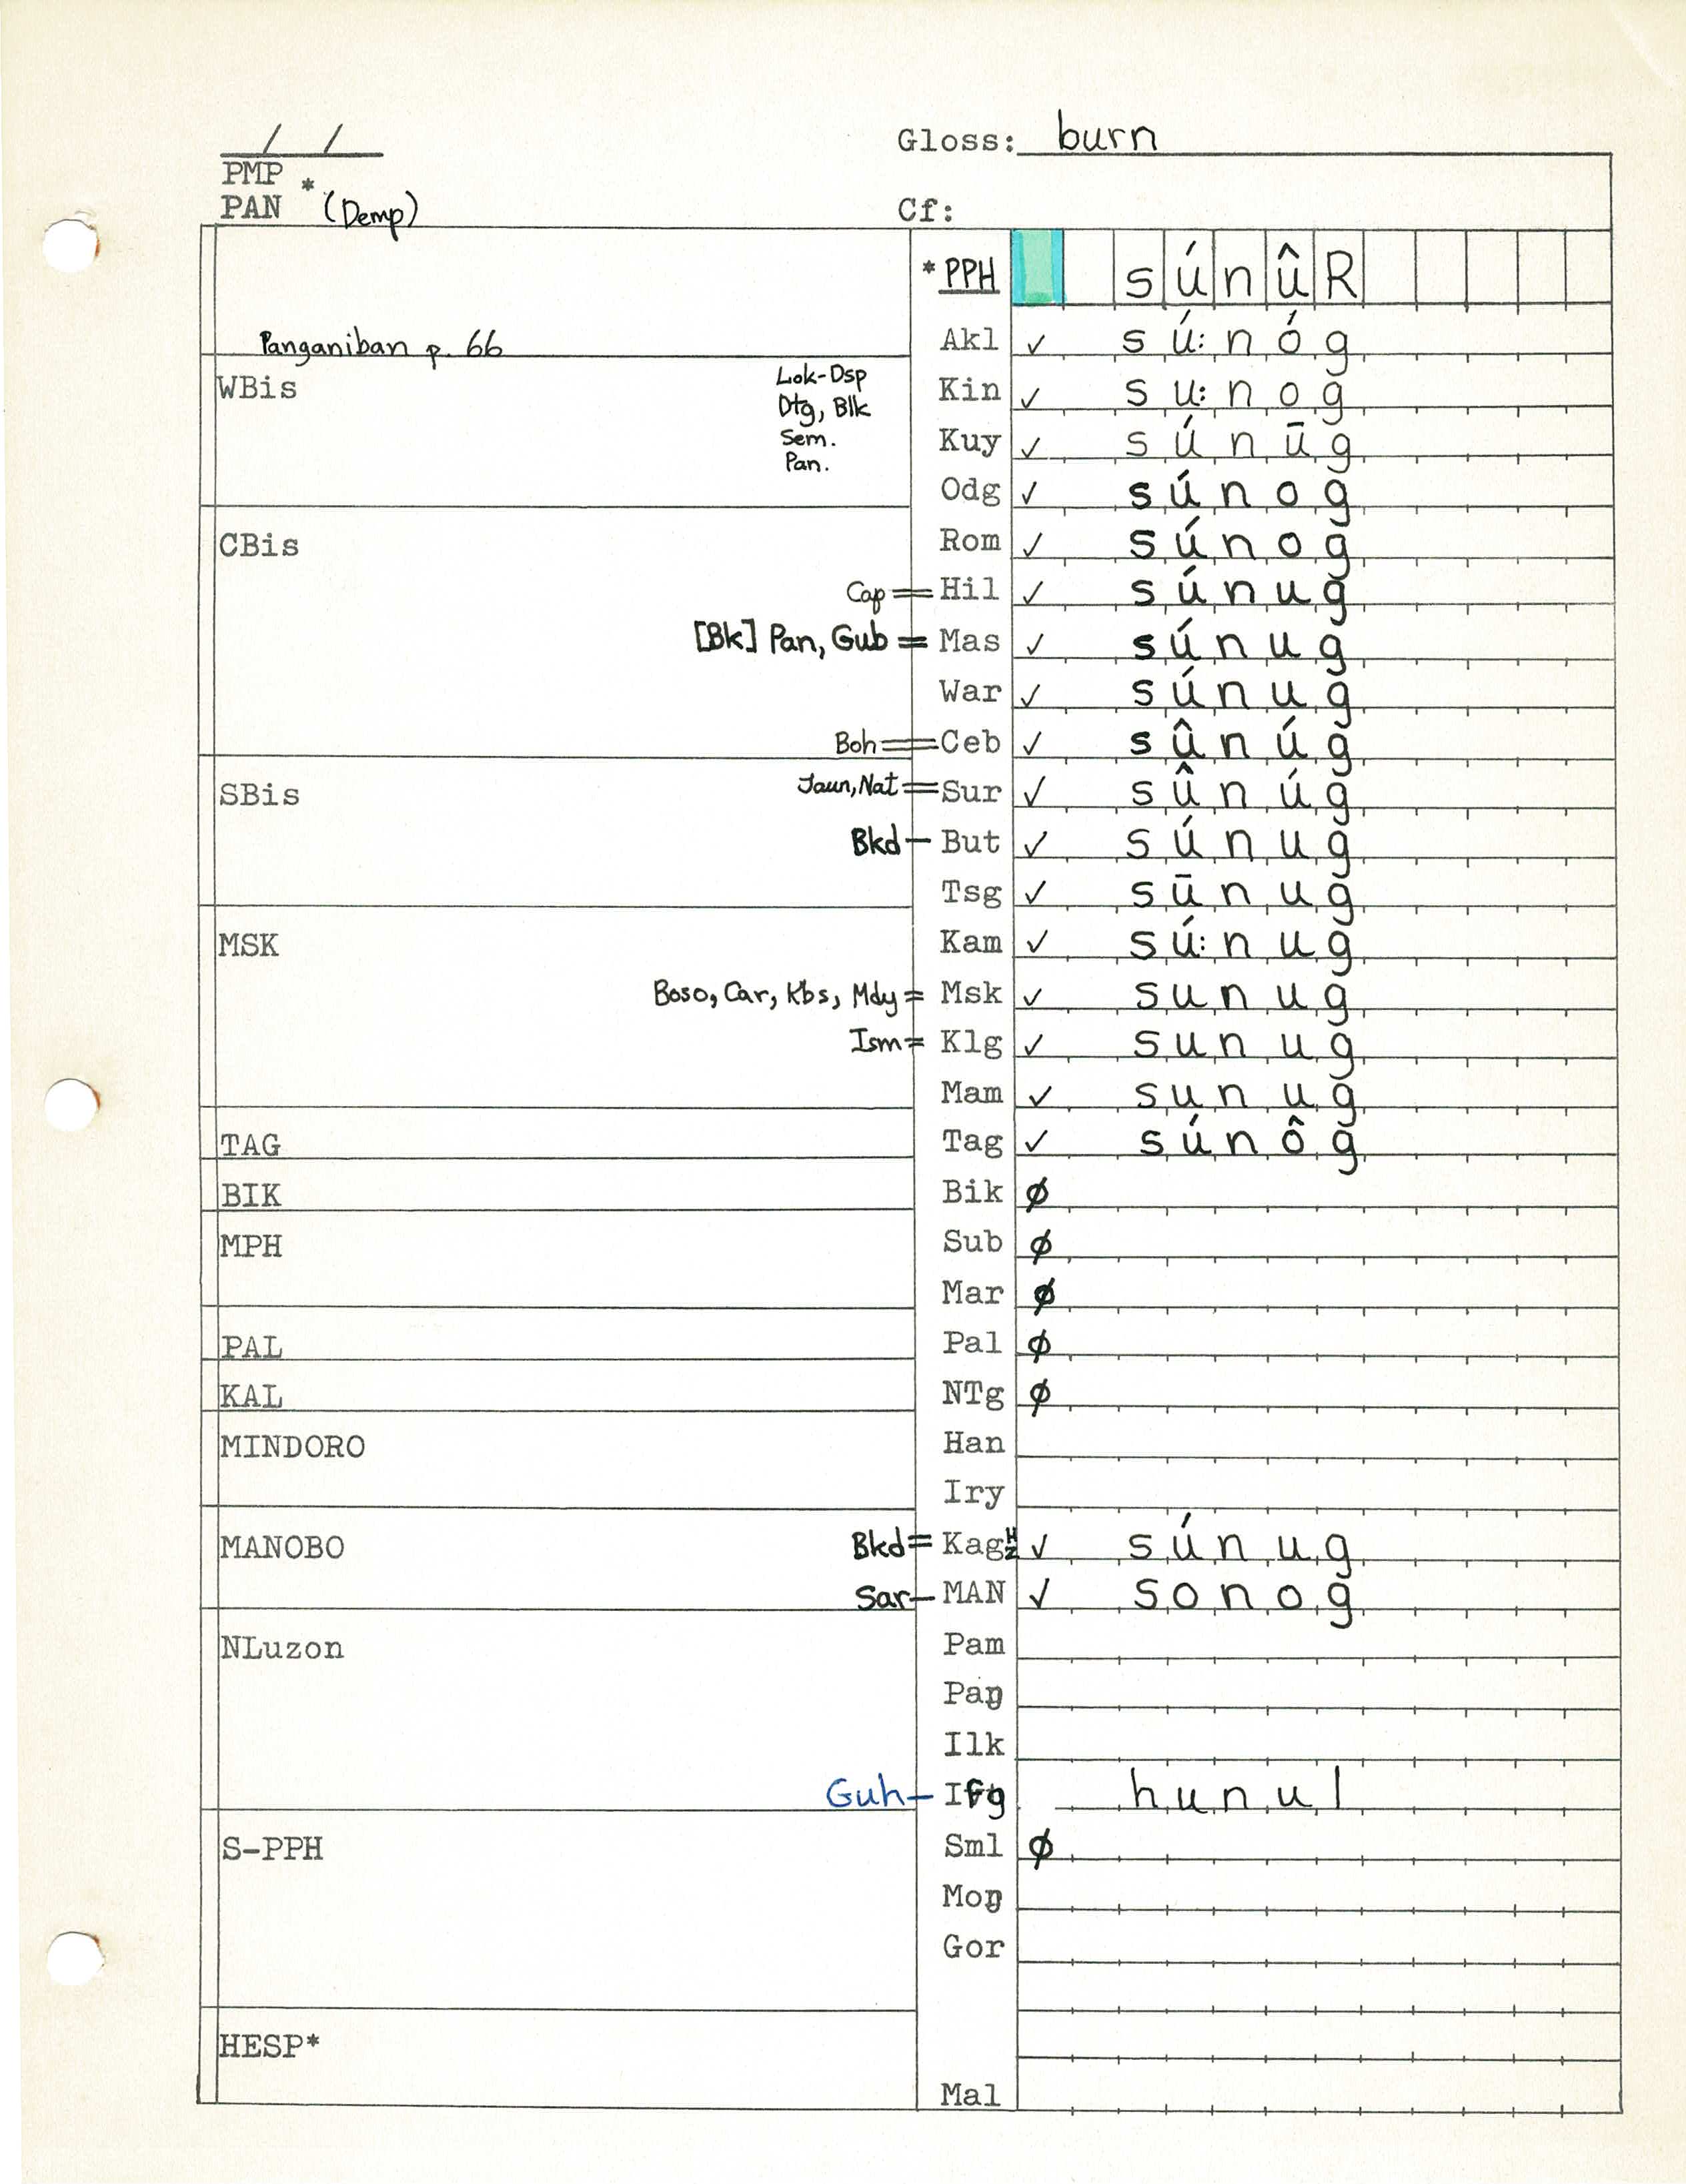 / /
Gloss: burn
PMP *
PAN (Demp)
Cf:
*PPH súnûR
Panganiban p. 66
Akl ✓ sú:nóg
WBis
Lok-Dsp
Dtg, Blk
Sem.
Pan.
Kin ✓ su:nog
Kuy ✓ súnūg
Odg ✓ súnog
CBis
Rom ✓ súnog
Cap = Hil ✓ súnug
[Bk] Pan, Gub = Mas ✓ súnug
War ✓ súnug
Boh = Ceb ✓ sûnúg
SBis
Jaun, Nat = Sur ✓ sûnúg
Bkd - But ✓ súnug
Tsg ✓ sūnug
MSK
Kam ✓ sú:nug
Boso, Car, Kbs, Mdy = Msk ✓ sunug
Ism = Klg ✓ sunug
Mam ✓ sunug
TAG Tag ✓ súnôg
BIK Bik ∅
MPH Sub ∅
Mar ∅
PAL Pal ∅
KAL NTg ∅
MINDORO Han
Iry
MANOBO Bkd = Kag ✓ súnug
Sar - MAN ✓ sonog
NLuzon Pam
Paŋ
Ilk
Guh - Ifg hunul
S-PPH Sml ∅
Moŋ
Gor
HESP*
Mal